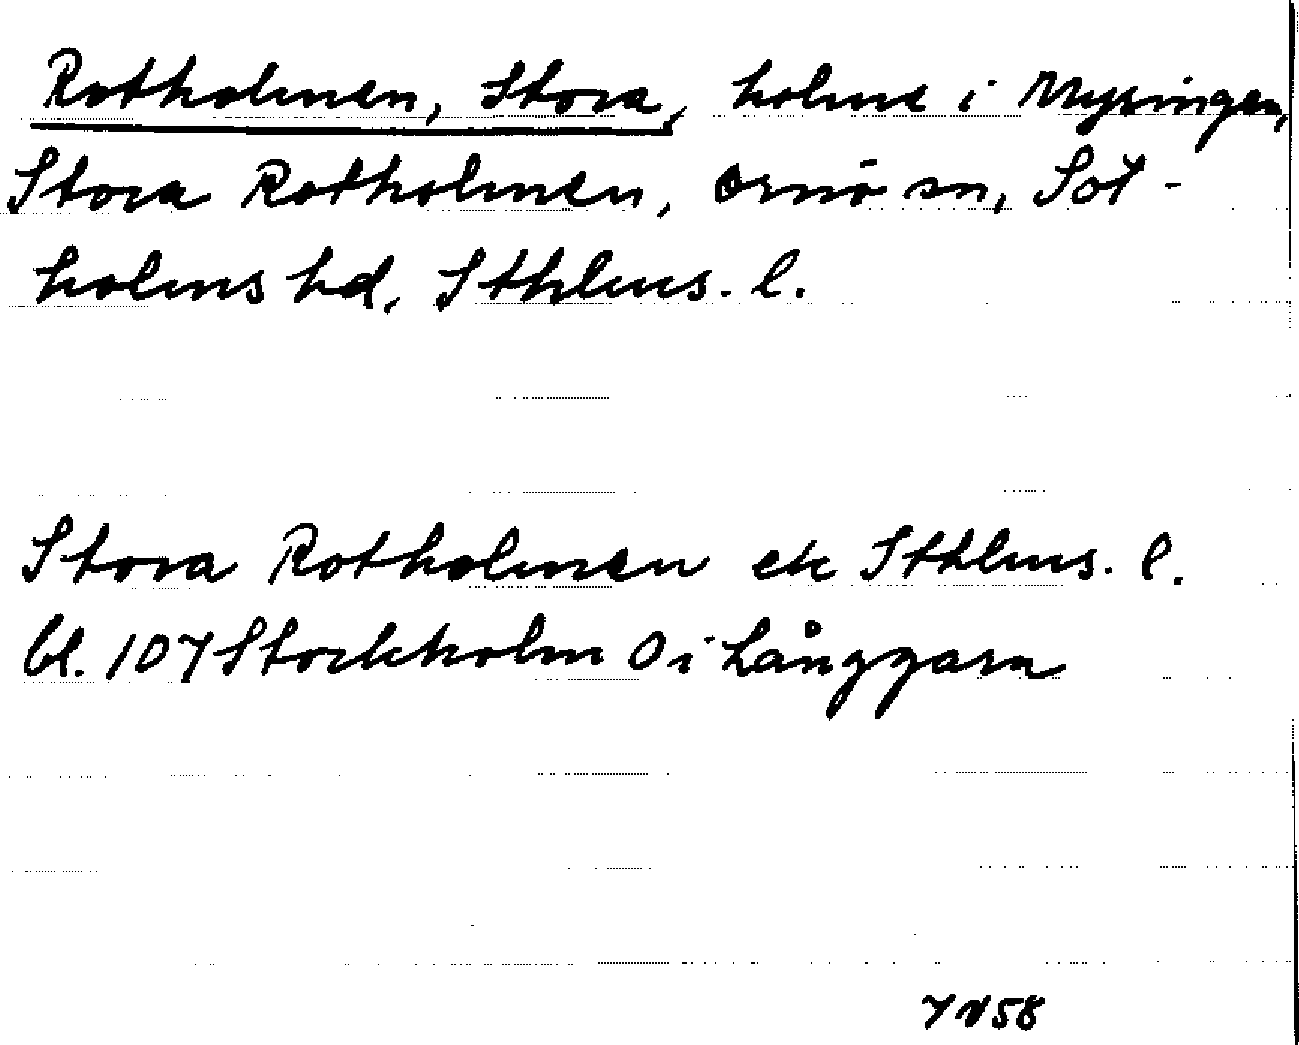 Rotholmen, Stora, holme i Mysingen,
Stora Rotholmen, Ornö sn, Sot-
holms hd, Sthlms. l.
Stora Rotholmen ek Sthlms. l.
bl. 107 Stockholm O i Långgarn
58